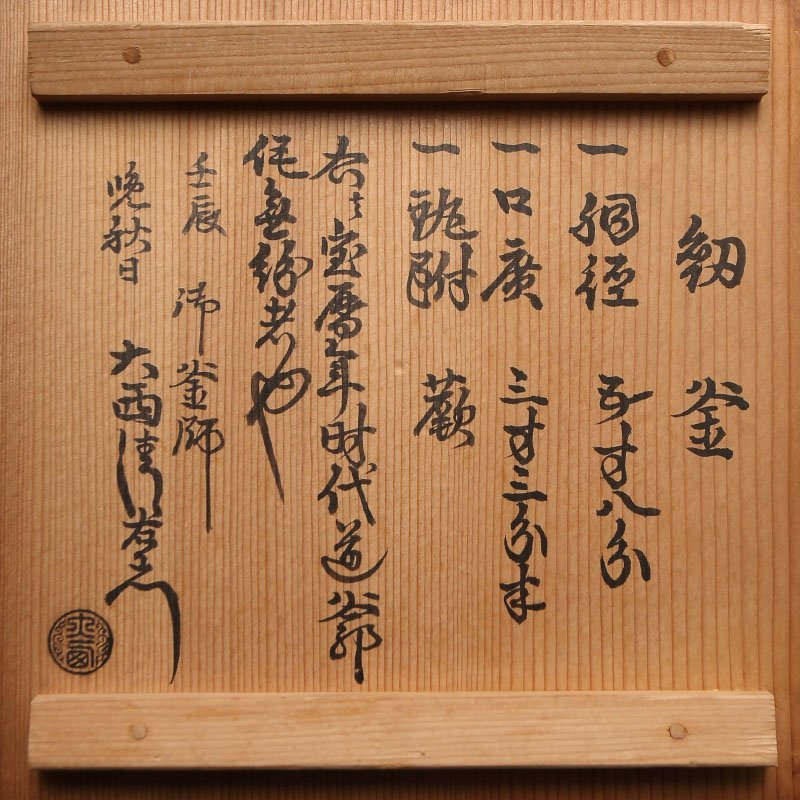 釜
一 胴径 五寸八分
一 口廣 三寸三分半
一 附 蕨
右之宝暦年时代道爺
作無紛者也
壬辰 御釜師
晩秋日 大西清右衛門
大西